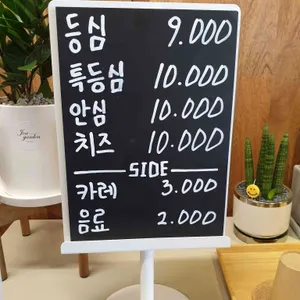 등심 9.000
특등심 10.000
안심 10.000
치즈 10.000
SIDE
카레 3.000
음료 2.000